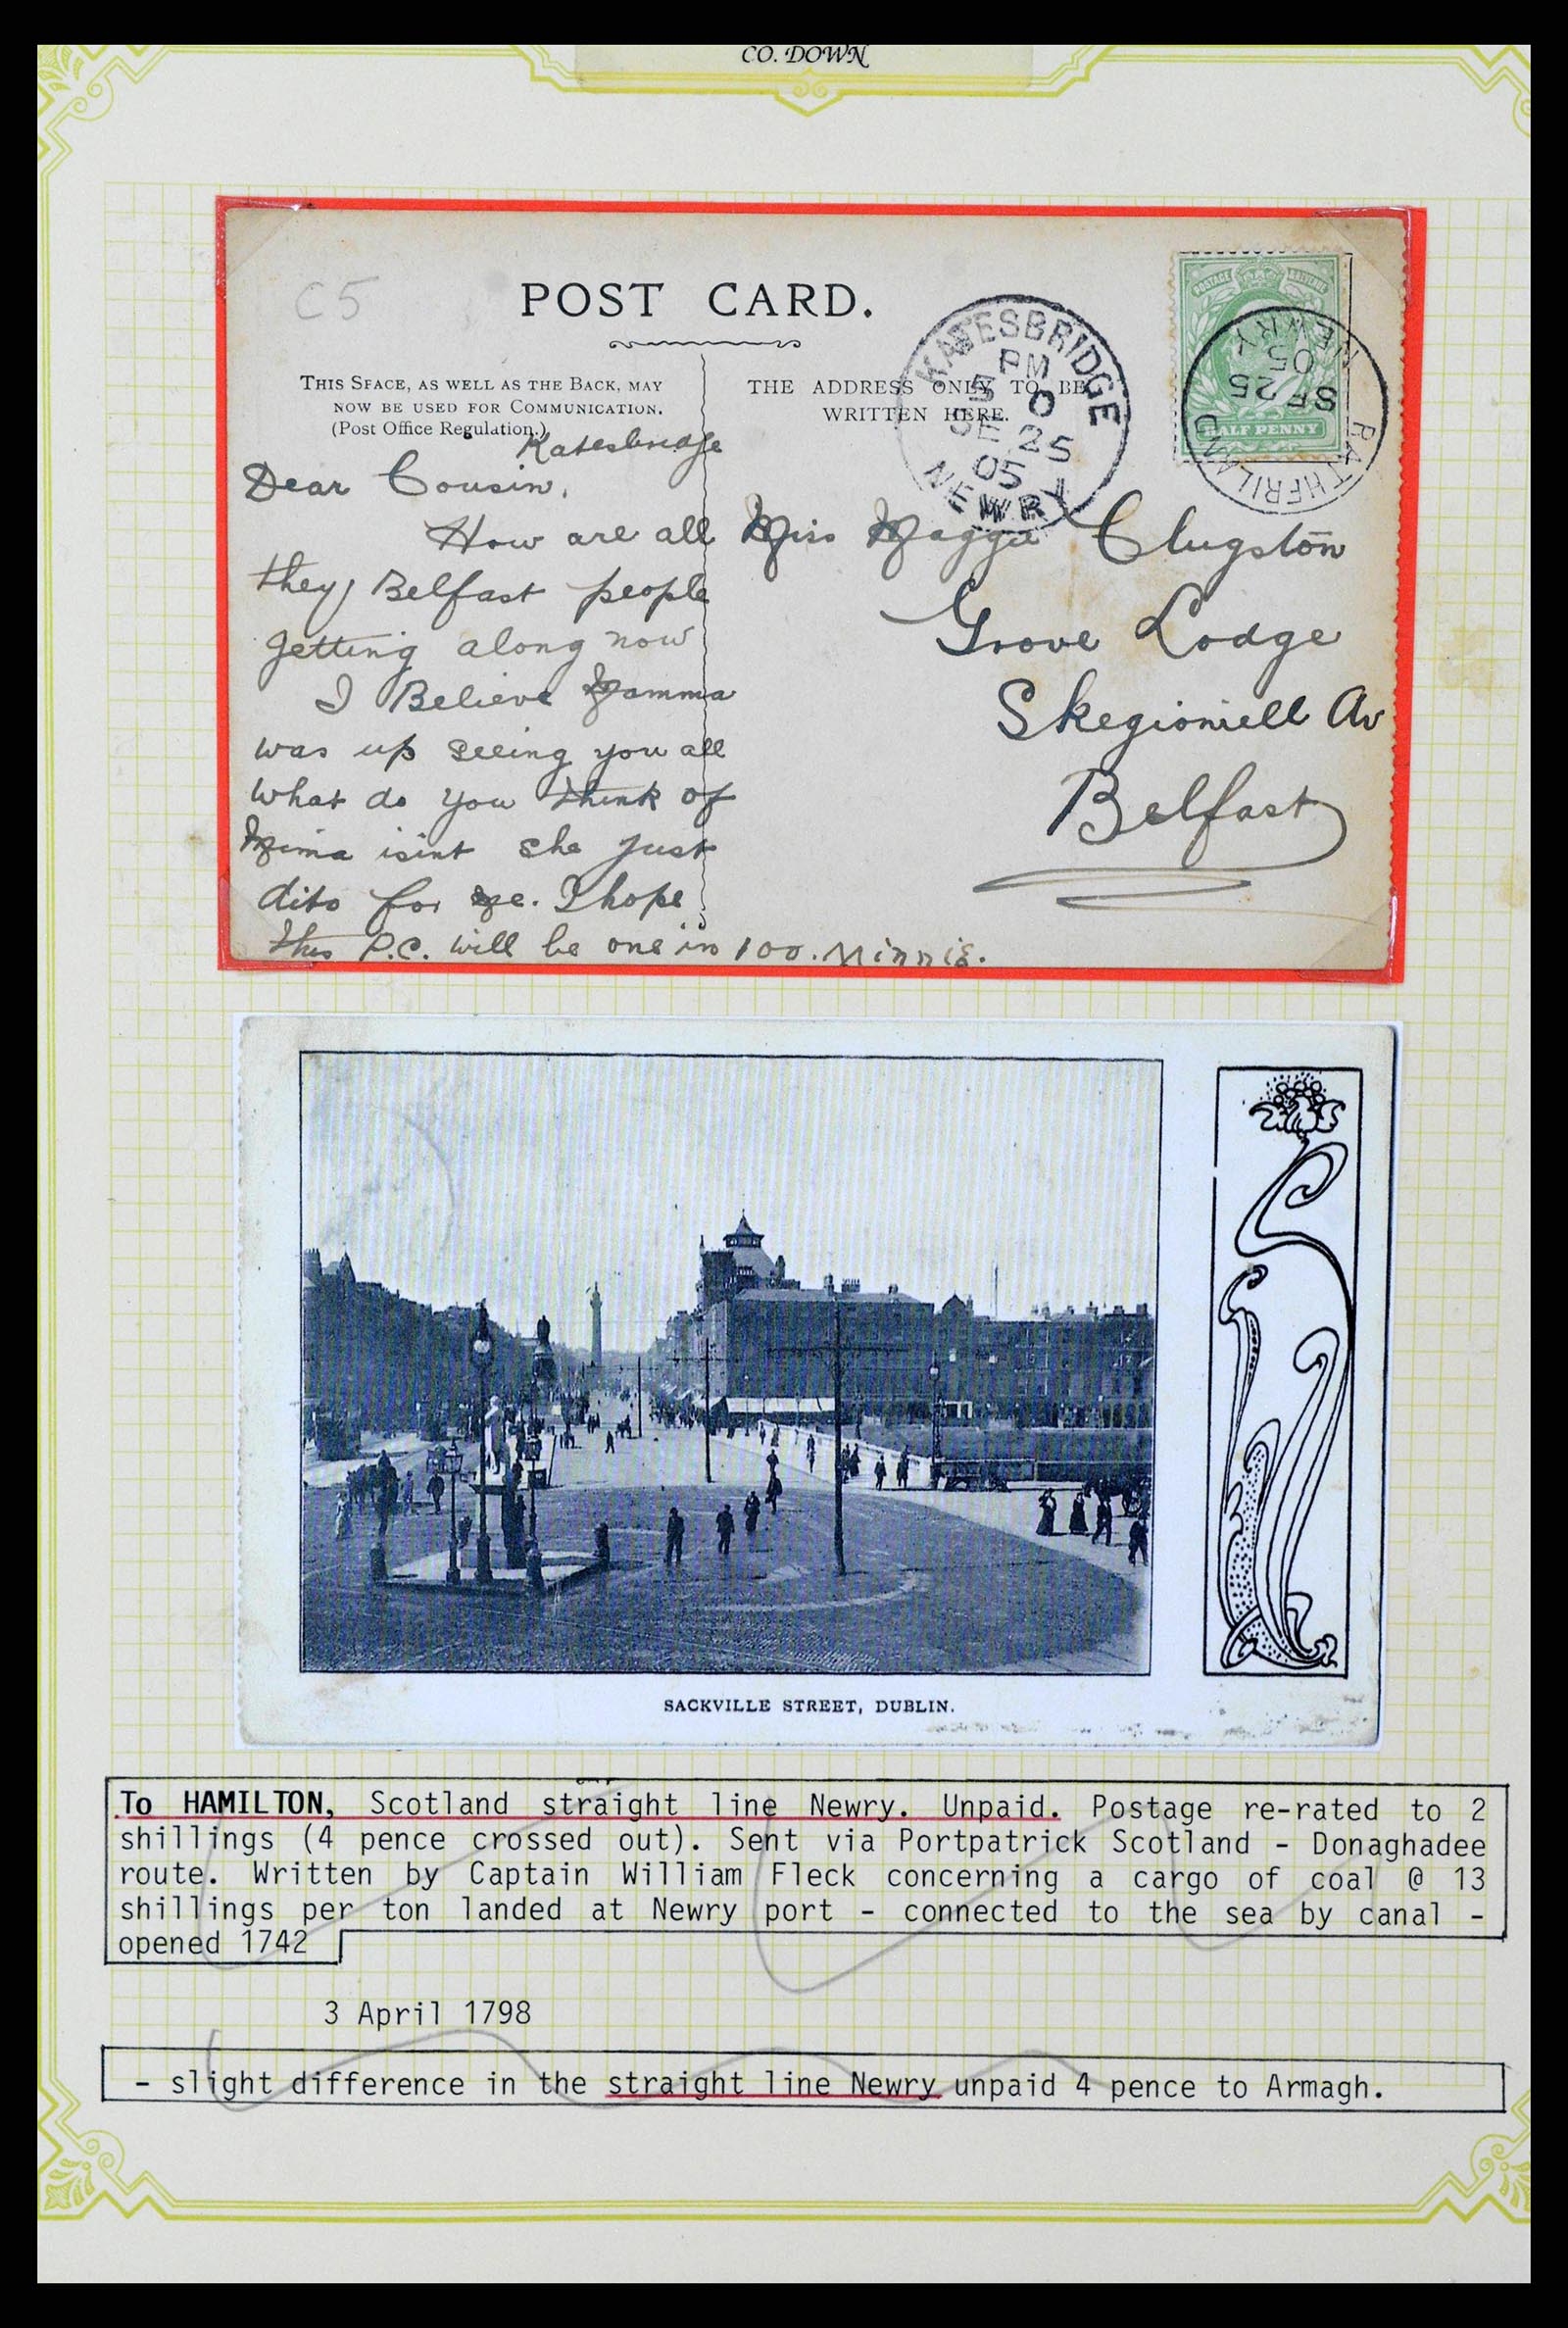 CO. DOWN
C5
POST CARD.
THIS SPACE, AS WELL AS THE BACK, MAY
NOW BE USED FOR COMMUNICATION.
(Post Office Regulation.)
THE ADDRESS ONLY TO BE
WRITTEN HERE.
KATESBRIDGE
PM
5 0
SE 25
05
NEWRY
POSTAGE REVENUE
HALF PENNY
RATHFRILAND
SE 25
05
NEWRY
Katesbridge
Dear Cousin,
How are all
they Belfast people
getting along now
I Believe Mamma
was up seeing you all
what do you think of
Mima isint she just
dito for me. I hope
this P.C. will be one in 100. Minnie.
Miss Maggie Clugston
Grove Lodge
Skegioniell Av
Belfast
SACKVILLE STREET, DUBLIN.
To HAMILTON, Scotland straight line Newry. Unpaid. Postage re-rated to 2
shillings (4 pence crossed out). Sent via Portpatrick Scotland - Donaghadee
route. Written by Captain William Fleck concerning a cargo of coal @ 13
shillings per ton landed at Newry port - connected to the sea by canal -
opened 1742
3 April 1798
- slight difference in the straight line Newry unpaid 4 pence to Armagh.